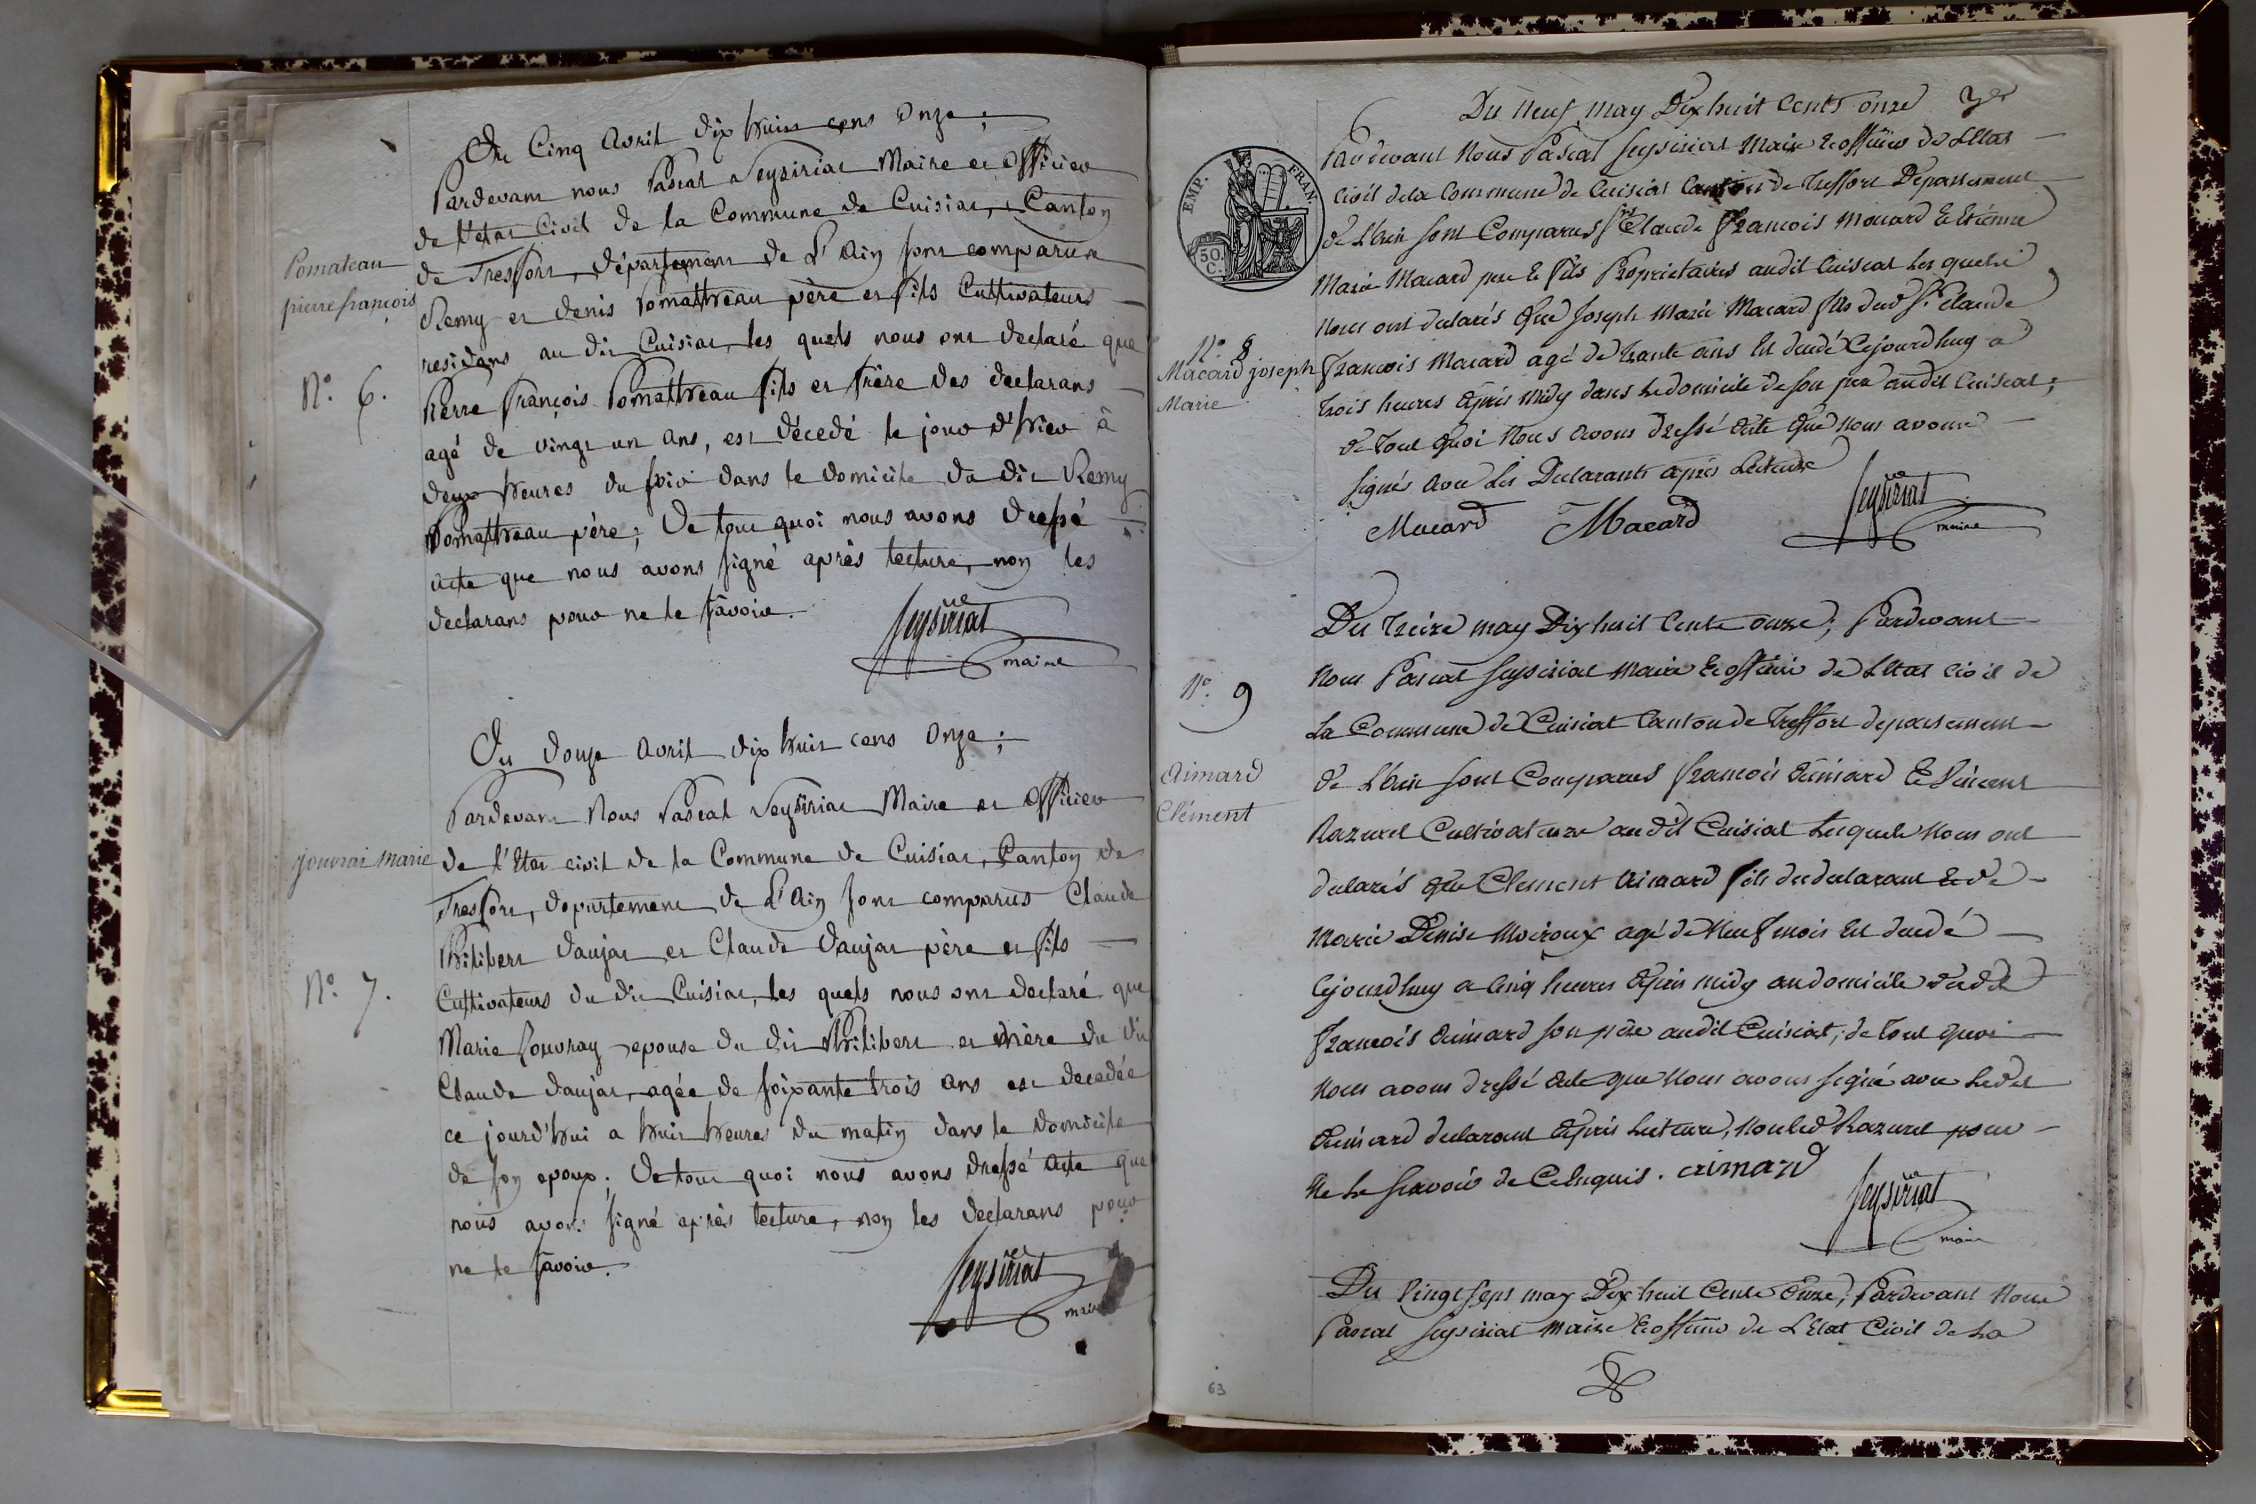 Du Cinq Avril dix huit cens onze;
Pardevant nous Pascal Seysiriat Maire et officier
de l'état Civil de la Commune de Cuisiat, Canton
de Tresfort, département de L'Ain sont comparus
Pomateau
pierre françois
Remy et denis Pomathreau père et fils Cultivateurs
residans au dit Cuisiat, les quels nous ont declaré que
N°. 6.
Pierre François Pomathreau fils et frère des declarans
agé de vingt un ans, est décedé le jour d'hier à
deux heures du soir dans le domicile du dit Remy
Pomathreau père; De tout quoi nous avons dressé
acte que nous avons signé après lecture, non les
declarans pour ne le savoir.
Seysiriat
maire
Du douze Avril dix huit cens onze;
Pardevant Nous Pascal Seysiriat Maire et officier
jouvrai marie
de l'Etat civil de la Commune de Cuisiat, Canton de
Tresfort, departement de L'Ain sont comparus Claude
Philibert daujat et Claude daujat père et fils
Cultivateurs du dit Cuisiat, les quels nous ont declaré que
N°. 7.
Marie Jouvray epouse du dit Philibert et mère du dit
Claude daujat, agée de soixante trois ans est decedée
ce jourd'hui a huit heures du matin dans le domicile
de son epoux. De tout quoi nous avons dressé acte que
nous avons signé après lecture, non les declarans pour
ne le savoir.
Seysiriat
maire
Du neuf may Dix huit Cents onze
Pardevant Nous Pascal Seysiriat Maire et officier de L'Etat
EMP. FRAN.
50. C.
civil de la Commune de Cuisiat Canton de Treffort Département
de L'Ain sont Comparus Sr. Claude François Macard et Etienne
Marie Macard pere et fils Proprietaires audit Cuisiat les quels
nous ont declarés que Joseph Marie Macard fils dud Sr. Claude
N°. 8
Macard joseph
Marie
François Macard agé de trante ans Est decedé Cejourdhuy a
trois heures après midy dans Le domicile de son pere audit Cuisiat;
de tout quoi Nous avons dressé acte que nous avons
signés avec Les Declarants après Lecture
Macard Macard Seysiriat
maire
Du treize may Dix huit Cents onze; Pardevant
N°. 9
Nous Pascal Seysiriat Maire et officier de L'Etat civil de
La Commune de Cuisiat Canton de Treffort departement
Aimard
Clément
de L'Ain sont Comparus François Aimard et Vincent
Razurel Cultivateurs audit Cuisiat Lesquels Nous ont
declarés que Clement Aimard fils du declarant et de
Marie Denise Moiroux agé de Neuf mois Est decedé
Cejourdhuy a Cinq heures après midy au domicile dudit
François Aimard son père audit Cuisiat; de tout quoi
Nous avons dressé acte que Nous avons signé avec Ledit
Aimard declarant après Lecture, non led Razurel pour
Ne Le Scavoir de Ce Enquis. aimard
Seysiriat
maire
Du Vingt Sept may Dix huit Cents Onze, Pardevant Nous
Pascal Seysiriat Maire et officier de L'Etat Civil de La
63